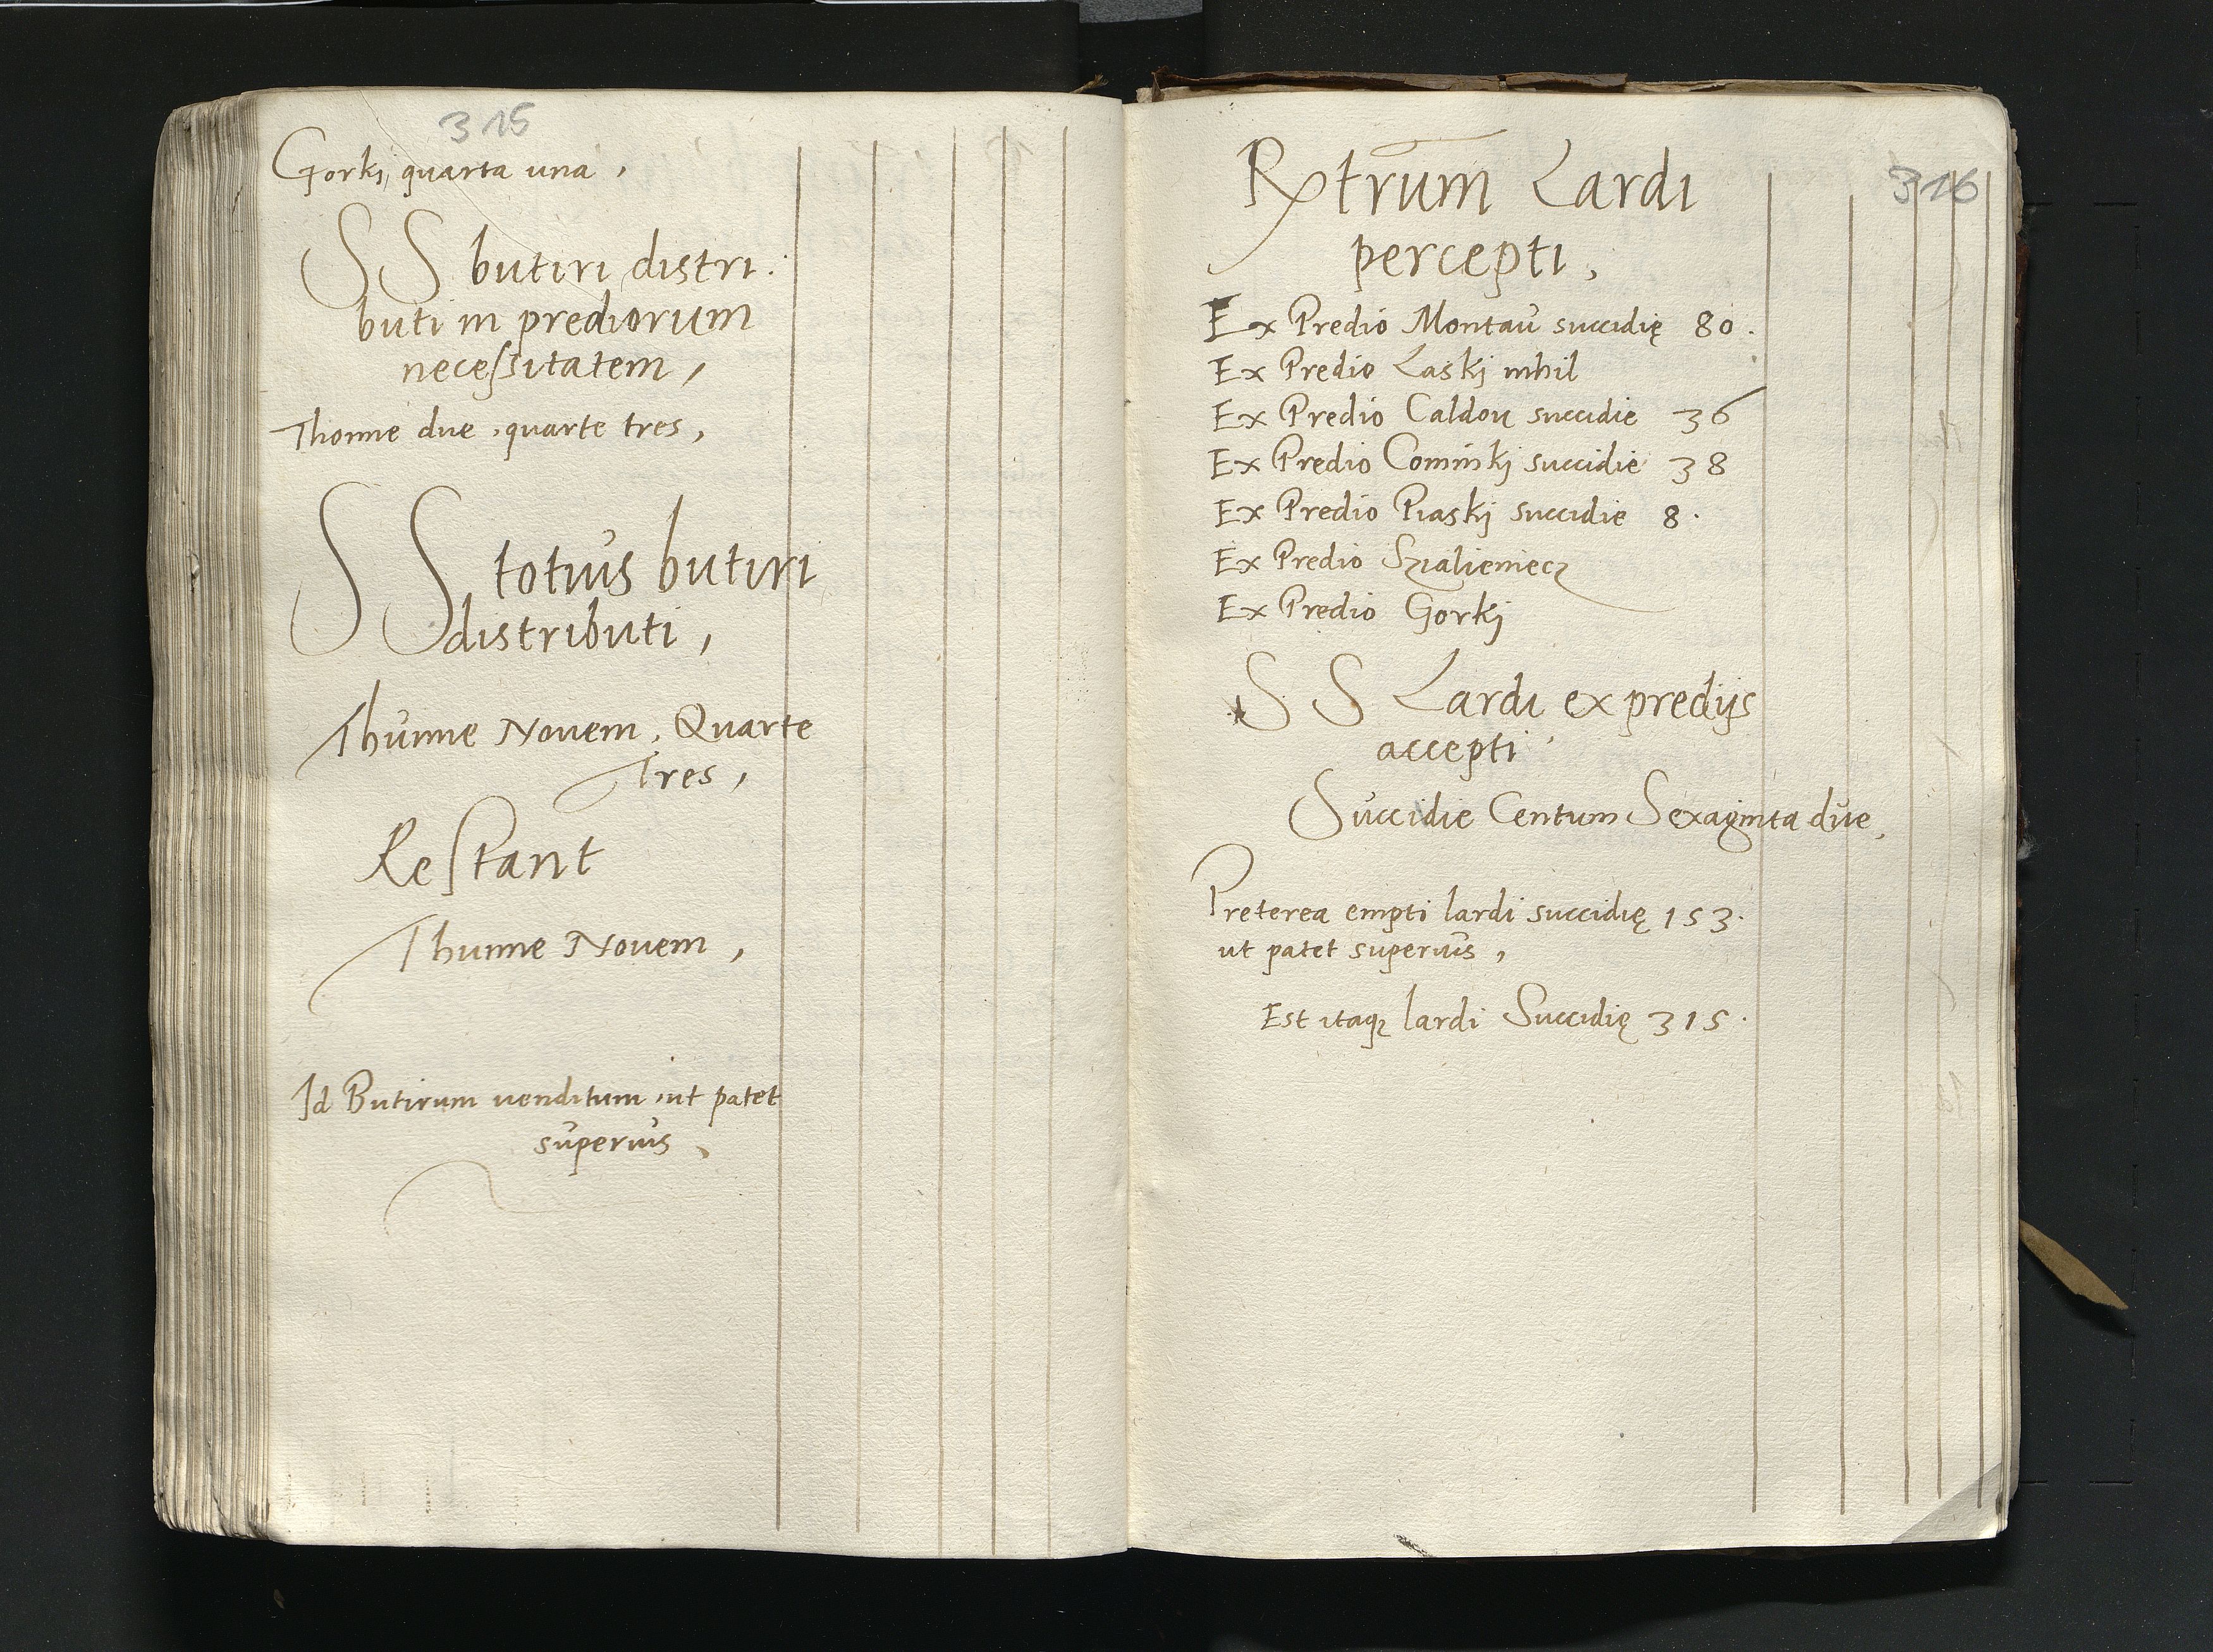 315
Gorkj quarta una,
SS butiri distri:
buti in prediorum
neceſsitatem,
Thonne due, quarte tres,
SS totius butiri
distributi,
Thunne Nouem, Quarte
Tres,
Reſtant
Thunne Nouem,
Id Butirum uenditum ut patet
superius,
316
Rxtrum Lardi
percepti,
Ex Predio Montau succidię 80.
Ex Predio Laskj nihil
Ex Predio Caldou succidie 36
Ex Predio Cominkj succidie 38
Ex Predio Piaskj succidie 8.
Ex Predio Szialieniecz
Ex Predio Gorkj
SS Lardi ex predijs
accepti
Succidie Centum Sexaginta due,
Preterea empti lardi succidię 153.
ut patet superius,
Est itaqꝫ lardi Succidię 315.